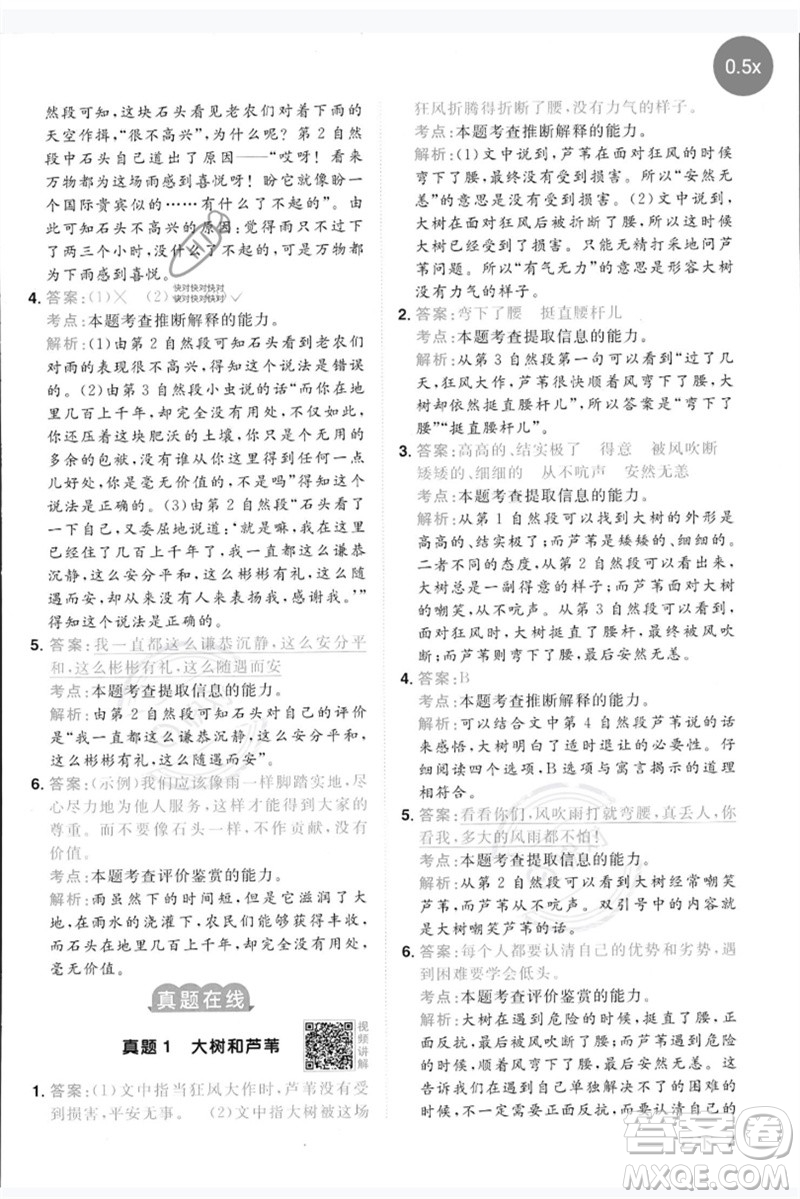 0.5x
然段可知，这块石头看见老农们对着下雨的
天空作揖，“很不高兴”，而根据第 2 自然
段中石头自己道出了原因——“哎呀！看来
万物都为这场雨感到喜悦呀！好像它们都是
一个国际贵宾似的……有什么了不起呀！”
由此可知石头不高兴的原因：觉得雨只不过下
了两三个小时，没什么了不起，可是万物都
为下雨感到喜悦。
4. 答案：(1)╳ (2)
快对快对快对
快对快对快对
✓
考点：本题考查推断解释的能力。
解析：(1)由第 2 自然段可知，石头对老农们
对雨的表现很不高兴，得知这个说法是错误
的。(2)由第 3 自然段小虫说的话“而你在地
里几百上千年，却完全没有用处，不仅如此，
你还霸占着这块肥沃的土壤，真是个无用的
多余的包被，没有你，人家的地里完全可以一
点儿好好，你是毫无价值的。”得知这个
说法是正确的。(3)由第 2 自然段“石头看了
一下自己，又委屈地说道：‘就是嘛，我在这里
已经住了几百上千年了，我一直都这么谦恭
沉静，这么安分平和，这么彬彬有礼，这么随
遇而安，可是却没有人来表扬我，感谢我。’”
得知这个说法是正确的。
5. 答案：我一直都这么谦恭沉静，这么安分平
和，这么彬彬有礼，这么随遇而安
考点：本题考查提取信息的能力。
解析：由第 2 自然段可知石头对自己的评价
是“我一直都这么谦恭沉静，这么安分平和，
这么彬彬有礼，这么随遇而安”。
6. 答案：(示例)我们应该像雨一样脚踏实地，尽
心尽力地为他人服务，这样才能得到大家的
尊重。而不要像石头一样，不作贡献，没有
价值。
考点：本题考查评价鉴赏的能力。
解析：雨虽然下的时间短，但是它滋润了大
地，在雨水的浇灌下，农民们能够获得丰收，
而石头在地里几百上千年，却完全没有用处，
毫无价值。
真题在线
真题 1 大树和芦苇
视频讲解
1. 答案：(1)文中指当狂风大作时，芦苇没有受
到损害，平安无事。 (2)文中指大树被这场
狂风折腾得折断了腰，没有力气的样子。
考点：本题考查推断解释的能力。
解析：(1)文中说到，芦苇在面对狂风的时候
弯下了腰，最终没有受到损害。所以“安然无
恙”的意思是没有受到损害。(2)文中说到，
大树在面对狂风后被折断了腰，由此可知，
大树已经受到了损害。只能无精打采地问芦
苇问题。所以“有气无力”的意思是形容大树
没有力气的样子。
2. 答案：弯下了腰 挺直腰杆儿
考点：本题考查提取信息的能力。
解析：从第 3 自然段第一句可以看到“过了几
天，狂风大作，芦苇很快顺着风弯下了腰，大
树却依然挺直腰杆儿”。所以答案是“弯下了
腰”“挺直腰杆儿”。
3. 答案：高高的、结实极了 得意 被风吹断
矮矮的、细细的 从不吭声 安然无恙
考点：本题考查提取信息的能力。
解析：从第 1 自然段可以找到大树的外形是
高高的、结实极了；而芦苇是矮矮的、细细的。
二者不同的态度，从第 2 自然段可以看出：
大树总是一副得意的样子；而芦苇面对大树
的嘲笑，从不吭声。从第 3 自然段可以看出：
面对狂风，大树挺直了腰杆，最终被风吹
断；而芦苇则弯下了腰，最终安然无恙。
4. 答案：B
考点：本题考查推断解释的能力。
解析：可以结合文中第 4 自然段芦苇说的话
来感悟，大树明白了适时退让的必要性。仔
细阅读四个选项，B 选项与寓言揭示的道理
相符合。
5. 答案：看看你们，风吹雨打就弯腰，真丢人，你
看我，多大的风雨都不怕！
考点：本题考查提取信息的能力。
解析：从第 2 自然段可以看出大树经常嘲笑
芦苇，而芦苇从不吭声。双引号中的内容就
是大树嘲笑芦苇的话。
6. 答案：每个人都要认清自己的优势和劣势，
遇到困难要学会低头。
考点：本题考查评价鉴赏的能力。
解析：大树在遇到危险的时候，非要正面反
抗，最后被风吹断了腰；而芦苇在遇到危险的
时候，并没有正面反抗，而是弯下了腰。这
告诉我们在遇到自己单独解决不了的困难的
时候，不一定要正面反抗，而可以适时退让。
答案圈
MXQE.COM